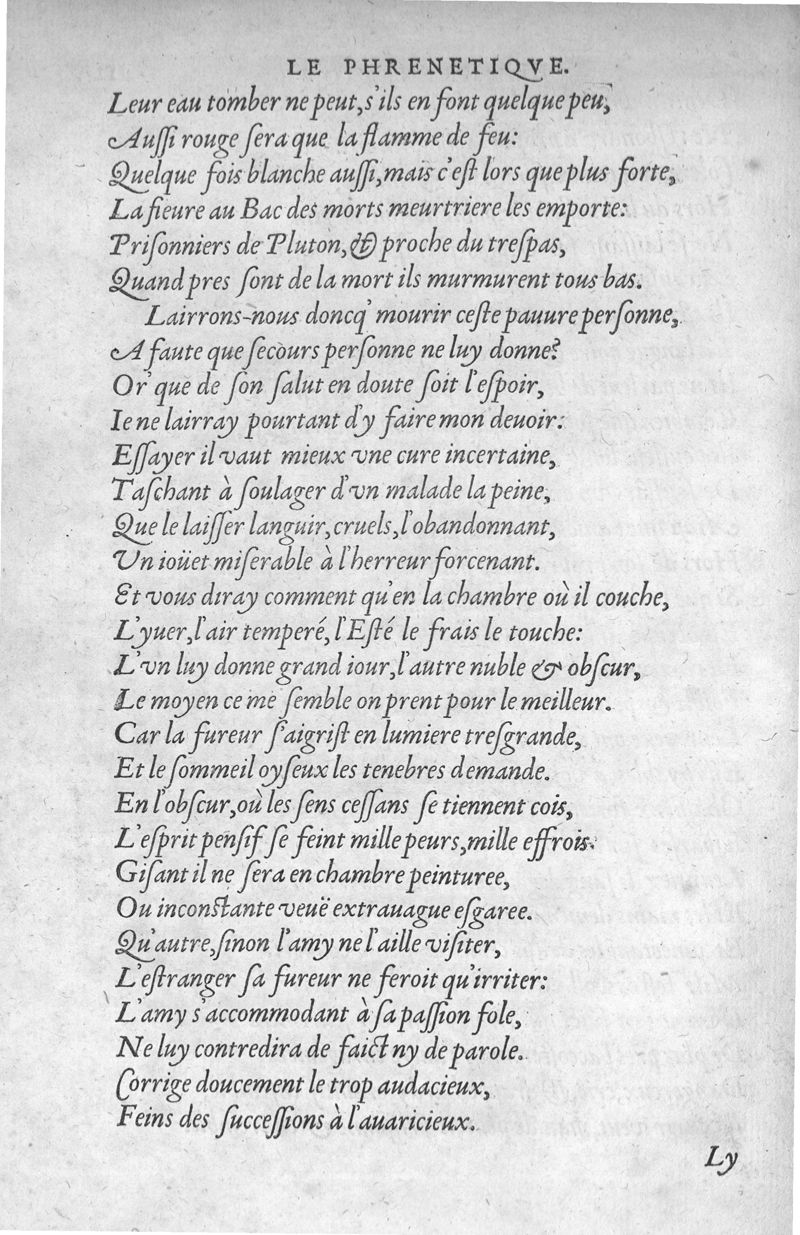 LE PHRENETIQVE.
Leur eau tomber ne peut, s'ils en font quelque peu,
Auſſi rouge ſera que la flamme de feu:
Quelque fois blanche auſſi, mais c'eſt lors que plus forte,
La fieure au Bac des morts meurtriere les emporte:
Priſonniers de Pluton, & proche du treſpas,
Quand pres ſont de la mort ils murmurent tous bas.
Lairrons-nous doncq' mourir ceſte pauure perſonne,
A faute que ſecours perſonne ne luy donne?
Or' que de ſon ſalut en doute ſoit l'eſpoir,
Ie ne lairray pourtant d'y faire mon deuoir:
Eſſayer il vaut mieux vne cure incertaine,
Taſchant à ſoulager d'vn malade la peine,
Que le laiſſer languir, cruels, l'obandonnant,
Vn ioüet miſerable à l'herreur forcenant.
Et vous diray comment qu'en la chambre où il couche,
L'yuer, l'air temperé, l'Eſté le frais le touche:
L'vn luy donne grand iour, l'autre nuble & obſcur,
Le moyen ce me ſemble on prent pour le meilleur.
Car la fureur ſ'aigriſt en lumiere treſgrande,
Et le ſommeil oyſeux les tenebres demande.
En l'obſcur, où les ſens ceſſans ſe tiennent cois,
L'eſprit penſif ſe feint mille peurs, mille effrois.
Giſant il ne ſera en chambre peinturee,
Ou inconſtante veuë extrauague eſgaree.
Qu'autre, ſinon l'amy ne l'aille viſiter,
L'eſtranger ſa fureur ne feroit qu'irriter:
L'amy s'accommodant à ſa paſſion fole,
Ne luy contredira de faict ny de parole.
Corrige doucement le trop audacieux,
Feins des ſucceſſions à l'auaricieux.
Ly